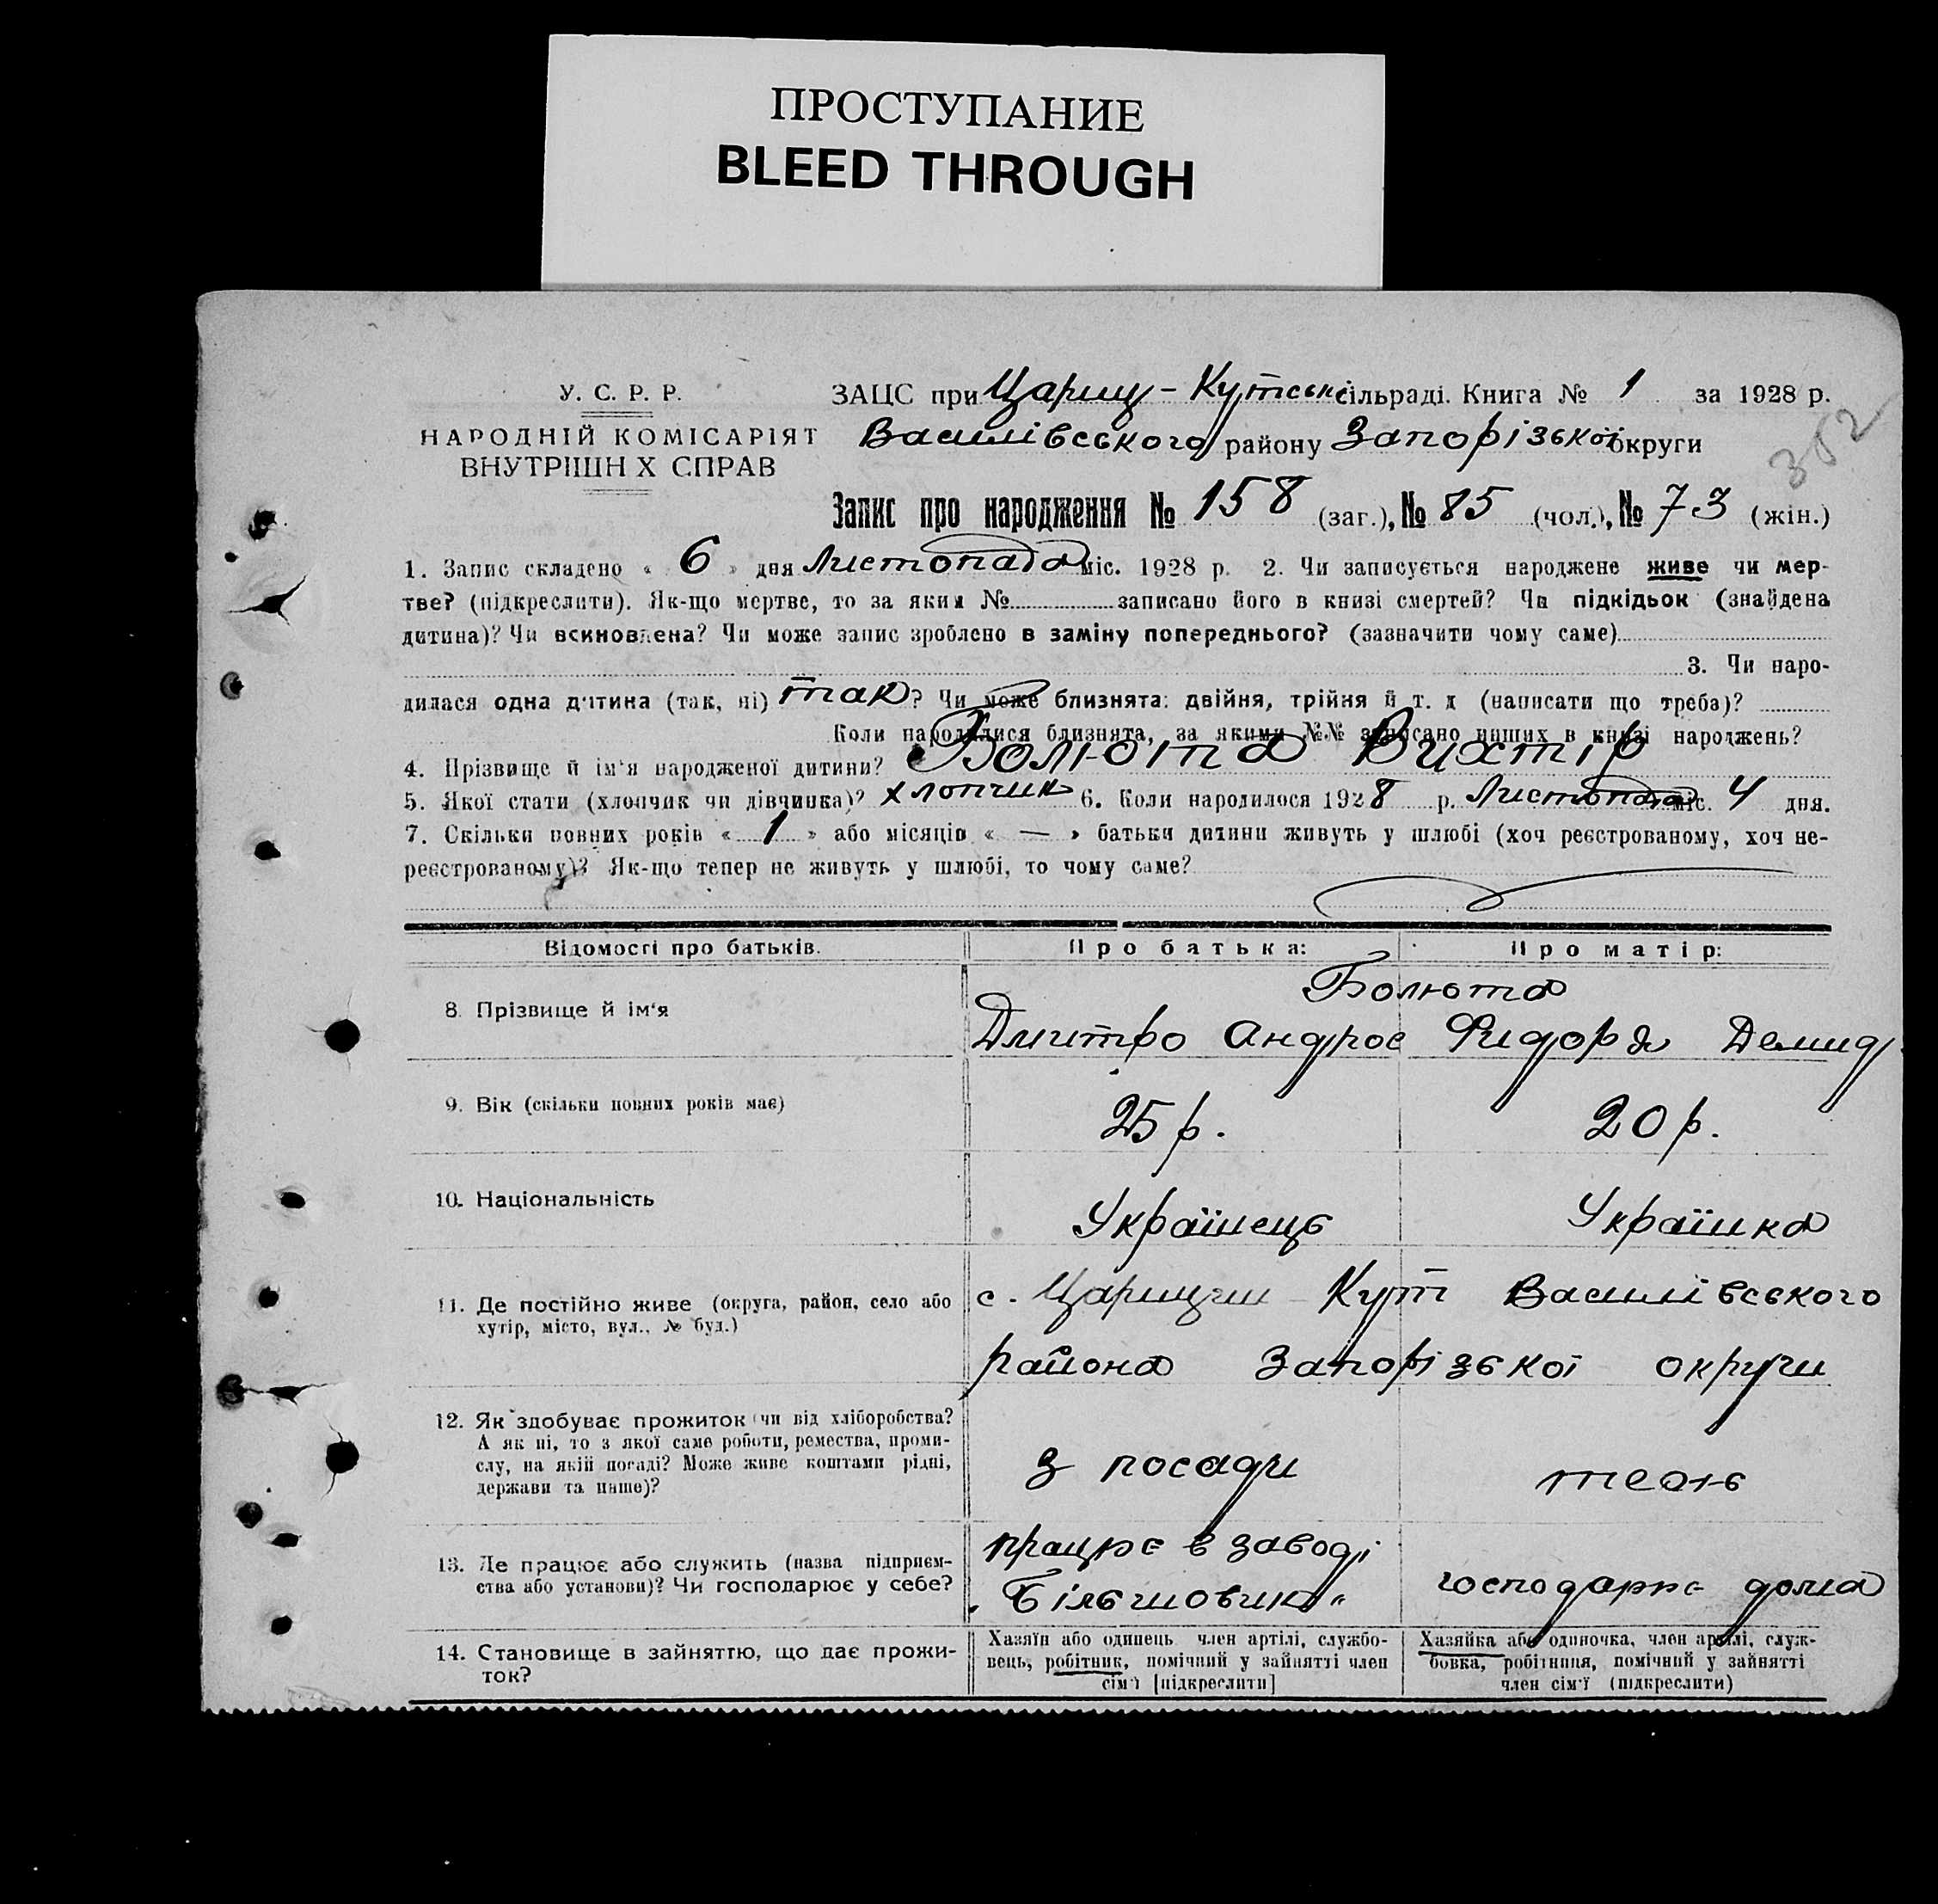 ПРОСТУПАНИЕ
BLEED THROUGH
У. С. Р. Р.
НАРОДНІЙ КОМІСАРІЯТ
ВНУТРІШН Х СПРАВ
ЗАЦС при Цариц-Кутські сільраді. Книга № 1 за 1928 р.
Василівського району Запорізької округи
352
Запис про народження № 158 (заг.), № 85 (чол.), № 73 (жін.)
1. Запис складено « 6 » дня Листопада міс. 1928 р. 2. Чи записується народжене живе чи мер-
тве? (підкреслити). Як-що мертве, то за яким № записано його в книзі смертей? Чи підкідьок (знайдена
дитина)? Чи всиновлена? Чи може запис зроблено в заміну попереднього? (зазначити чому саме)
3. Чи наро-
дилася одна дитина (так, ні) так? Чи може близнята: двійня, трійня й т. д (написати що треба)?
Коли народилися близнята, за якими №№ записано инших в книзі народжень?
4. Прізвище й ім'я народженої дитини? Болюта Вихтір
5. Якої стати (хлопчик чи дівчинка)? хлопчик 6. Коли народилося 1928 р. Листопада міс. 4 дня.
7. Скільки повних років « 1 » або місяців « — » батьки дитини живуть у шлюбі (хоч реєстрованому, хоч не-
реєстрованому)? Як-що тепер не живуть у шлюбі, то чому саме?
Відомості про батьків.
Про батька:
Про матір:
8. Прізвище й ім'я
Болюта
Дмитро Андрос
Фидора Демид
9. Вік (скільки повних років має)
25 р.
20 р.
10. Національність
Українець
Українка
11. Де постійно живе (округа, район, село або
хутір, місто, вул., № буд.)
с. Царицин Кут Василівського
района Запорізької округи
12. Як здобуває прожиток (чи від хліборобства?
А як ні, то з якої саме роботи, ремества, проми-
слу, на якій посаді? Може живе коштами рідні,
держави та инше)?
з посади
теж
13. Де працює або служить (назва підприєм-
ства або установи)? Чи господарює у себе?
працює в заводі
"Більшовик"
господарює дома
14. Становище в зайняттю, що дає прожи-
ток?
Хазяїн або одинець член артілі, службо-
вець, робітник, помічний у зайнятті член
сім'ї [підкреслити]
Хазяйка або одиночка, член артілі, служ-
бовка, робітниця, помічний у зайнятті
член сім'ї (підкреслити)